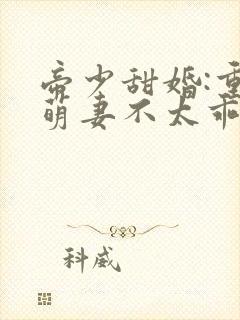 帝少甜婚:重
萌妻不太乖
科威